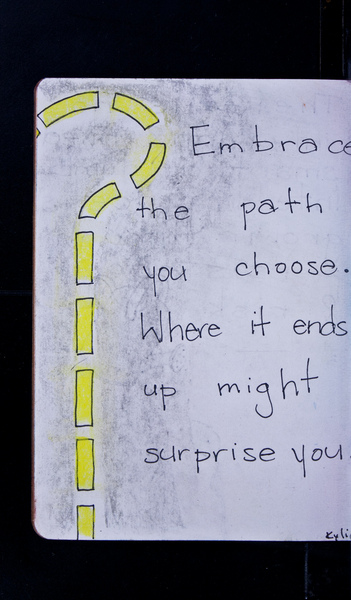 Embrace
the path
you choose.
Where it ends
up might
surprise you.